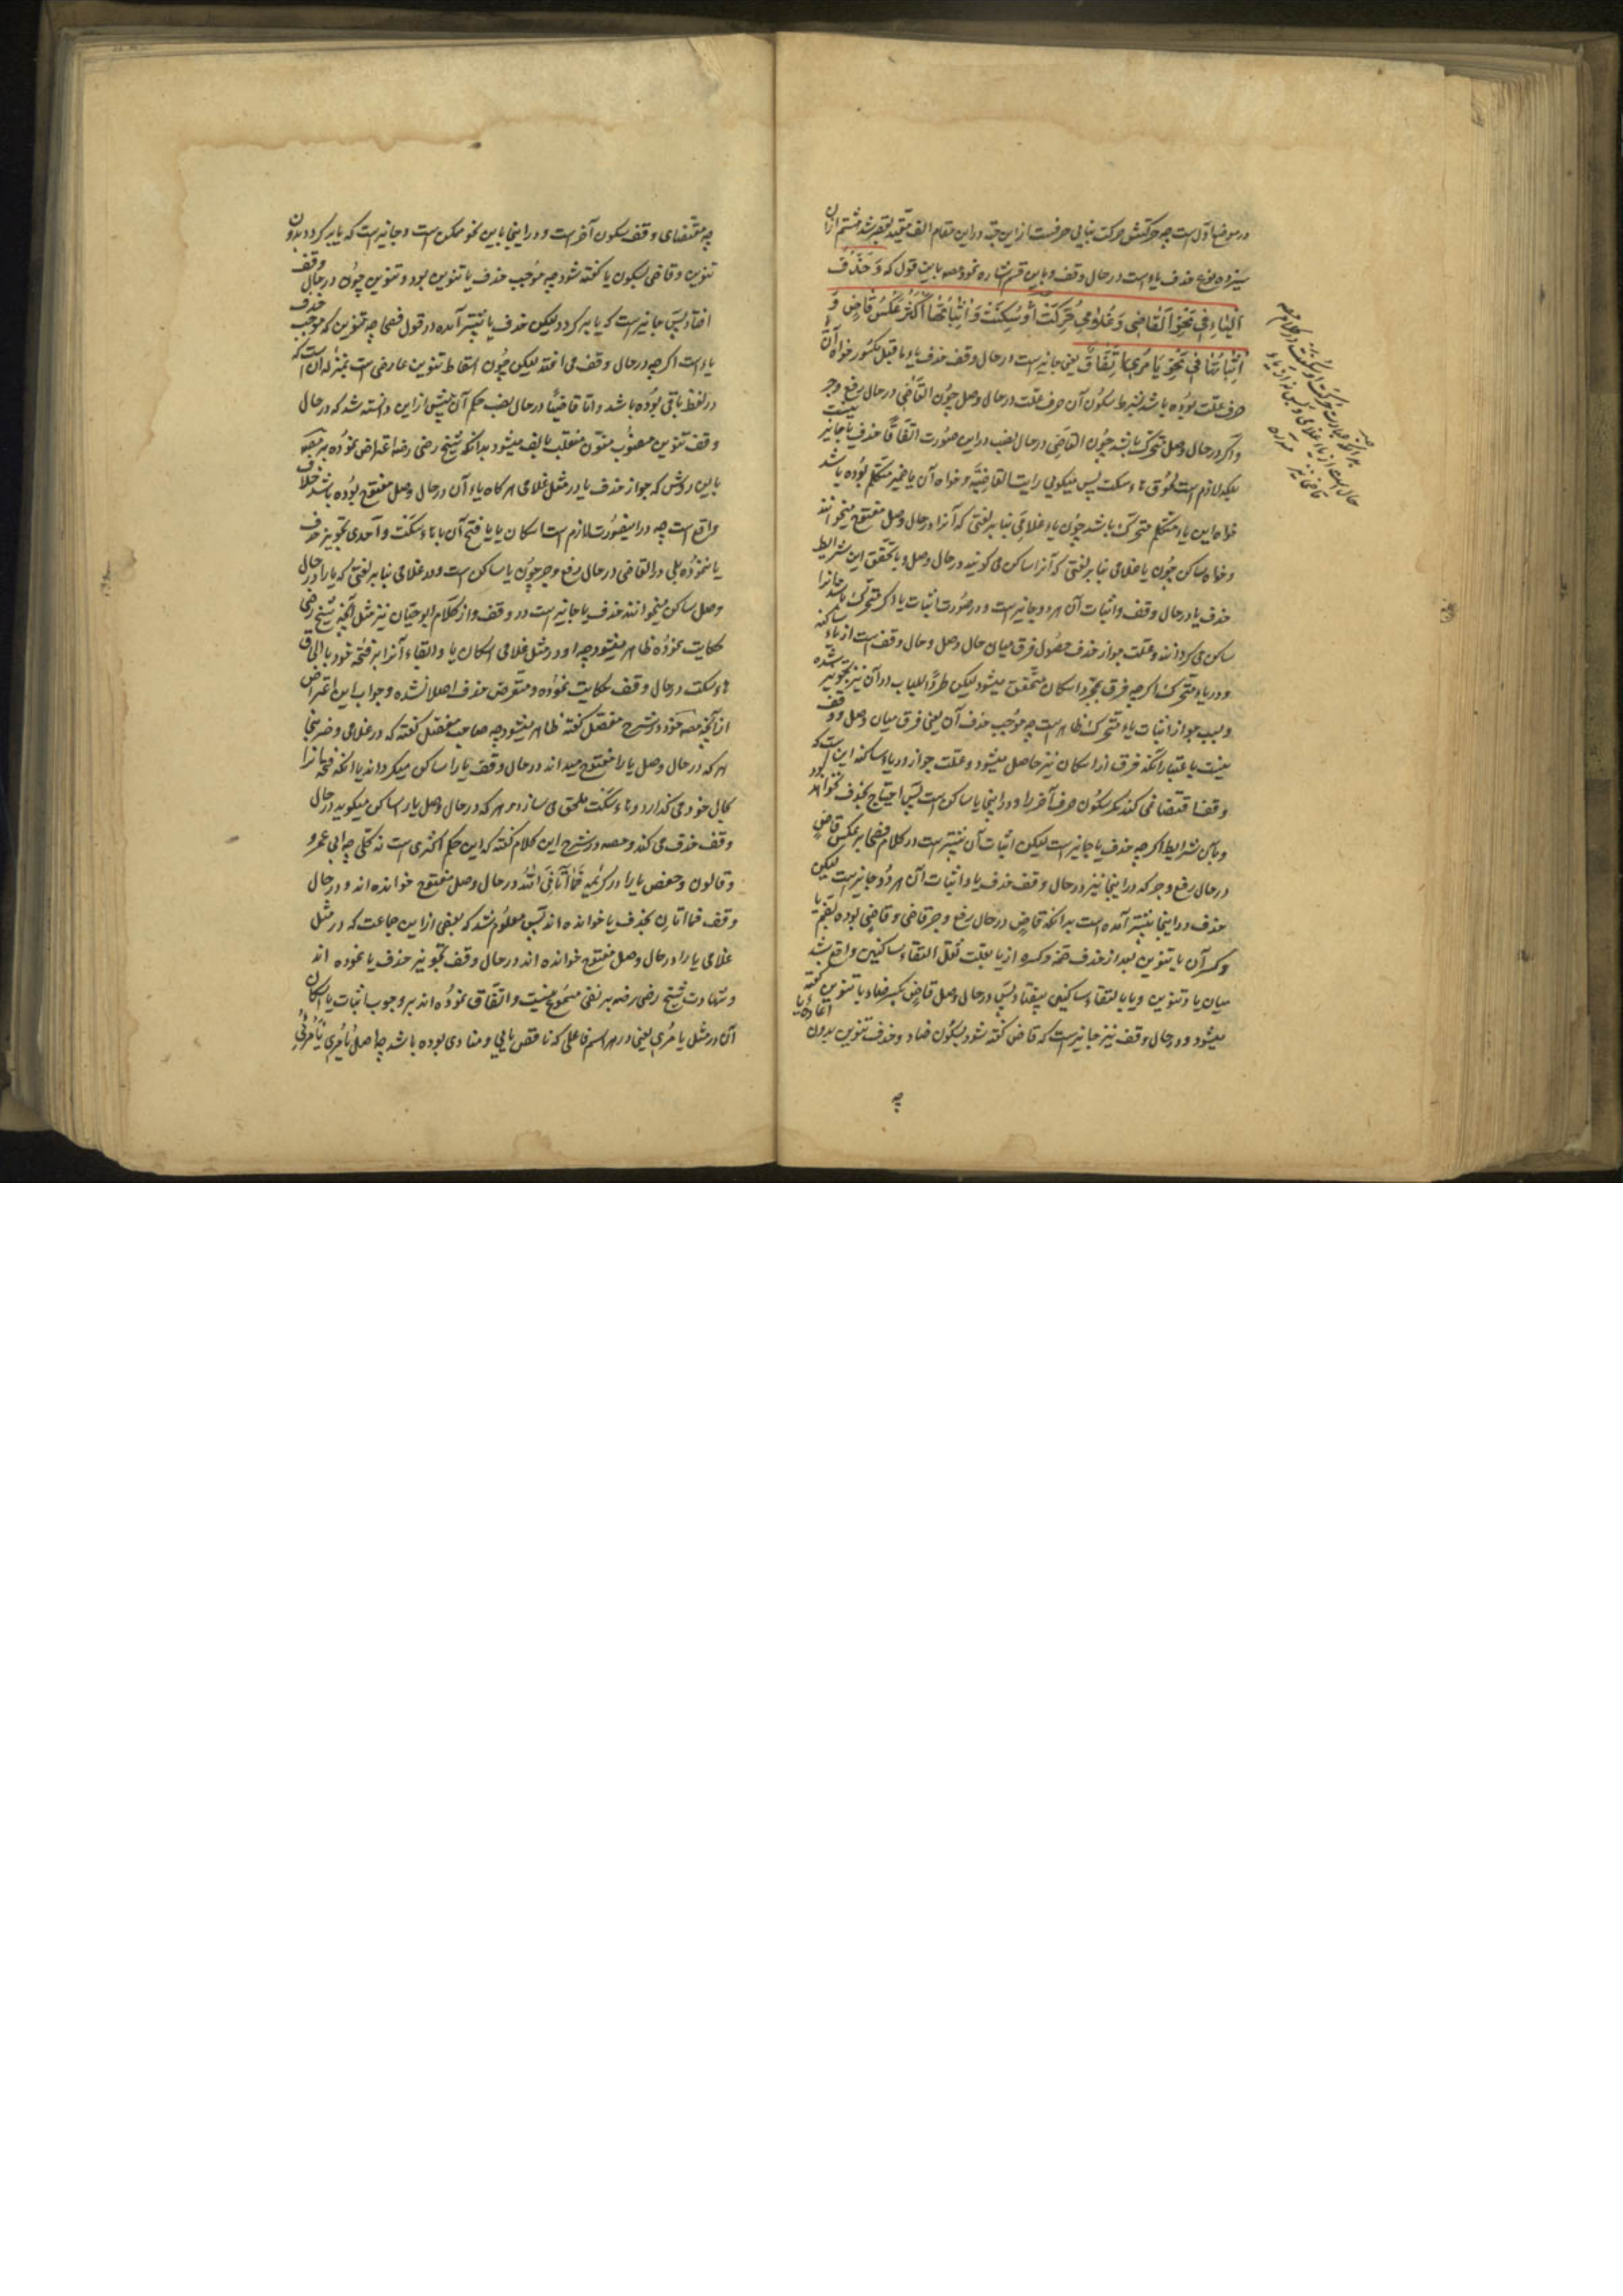 در موضع اول است چه حرکتش حرکت بنایی حرفیست از این جهة در این مقام الف مقید بقصر شد هشتم از آن
سیزده نوع حذف یاء است در حال وقف و باین قسم اشاره نمود مصه باین قول که وَحَذْفُ
الْیَاءِ فِي نَحْوِ الْقَاضِي وَغُلَامِي حُرِّكَتْ أَوْ سُكِّنَتْ وَإِثْبَاتُهَا أَكْثَرُ عَكْسُ قَاضٍ وَ
إِثْبَاتُهَا فِي نَحْوِ يَا مُرِي اِتِّفَاقٌ یعنی جایز است در حال وقف حذف یاء ما قبل مکسور خواه آن
حرف علت بوده باشد بشرط سکون آن حرف علت در حال وصل چون القاضی در حال رفع و جر
و اگر در حال وصل متحرک باشد چون القاضی در حال نصب در این صورت اتفاقا حذف یا جایز نیست
بلکه لازم است سکت پس میکویی رایت القاضیه و خواه آن یا ضمیر متکلم بوده باشد
خواه این یاء متکلم متحرک باشد چون یاء غلامی بنا بر لغتی که آنرا در حال وصل مفتوح میخوانند
و خواه ساکن چون یا غلامی بنا بر لغتی که آنرا ساکن می کویند در حال وصل و با تحقق این شرایط
حذف یا در حال وقف و اثبات آن هر دو جایز است و در صورت اثبات یاء اگر متحرک باشد آنرا
ساکن می کردانند و علت جواز حذف حصول فرق میان حال وصل و حال وقف است از یاء ساکنه
و در یاء متحرک اگر چه فرق بمجرد اسکان متحقق میشود لیکن طردا للباب در آن نیز تجویز شده
و سبب جواز اثبات یاء متحرک ظاهر است چه موجب حذف آن یعنی فرق میان وصل و وقف
نیست باعتبار آنکه فرق از اسکان نیز حاصل میشود و علت جواز در یاء ساکنه این است که
وقف اقتضا نمی کند مکر سکون حرف آخر را و در اینجا یا ساکن است پس احتیاج بحذف نخواهد بود
و باین شرایط اگر چه حذف یا جایز است لیکن اثبات آن بیشتر است در کلام فصحا بر عکس قاض
در حال رفع و جر که در اینجا نیز در حال وقف حذف یاء و اثبات آن هر دو جایز است لیکن
حذف در اینجا بیشتر آمده است بدانکه قاض در حال رفع و جر قاضی و قاضی بوده بضم یا
و کسر آن با تنوین بعد از حذف ضمه و کسره از یا بعلت ثقل التقاء ساکنین واقع شد
میان یاء و تنوین و یا بالتقاء ساکنین بیفتاد پس در حال وصل قاض بکسر ضاد با تنوین کفته
میشود و در حال وقف نیز جایز است که قاض کفته شود بسکون ضاد و حذف تنوین بدون اعاده یا
چه
چه مقتضای وقف سکون آخر است و در اینجا باین نحو ممکن است و جایز است که یا بر کردد بدون
تنوین و قاضی بسکون یا کفته شود چه موجب حذف یا تنوین بود و تنوین چون در حال وقف
افتاد پس جایز است که یا بر کردد لیکن حذف یا بیشتر آمده در قول فصحا چه تنوین که موجب حذف
یاء است اگر چه در حال وقف می افتد لیکن چون اسقاط تنوین عارضی است بمنزله آن است که
در لفظ باقی بوده باشد و اما قاضیا در حال نصب حکم آن پیش از این دانسته شد که در حال
وقف تنوین منصوب منون منقلب بالف میشود بدانکه شیخ رضی رضه اعتراض نموده بر مصه
باین روش که جواز حذف یا در مثل غلامی هر کاه یاء آن در حال وصل مفتوح بوده باشد خلاف
واقع است چه در اینصورت لازم است اسکان یا یا فتح آن با هاء سکت و احدی تجویز حذف
یا ننموده بلی در القاضی در حال رفع و جر چون یا ساکن است و در غلامی بنا بر لغتی که یا را در حال
وصل ساکن میخوانند حذف یا جایز است در وقف و از کلام ابو حیان نیز مثل آنچه شیخ رضی
حکایت نموده ظاهر میشود چه او در مثل غلامی اسکان یا و ابقاء آنرا بر فتحه خود با الحاق
هاء سکت در حال وقف حکایت نموده و متعرض حذف اصلا نشده و جواب این اعتراض
از آنچه مصه خود در شرح مفصل کفته ظاهر میشود چه صاحب مفصل کفته که در غلامی و ضربنی
هر که در حال وصل یا را مفتوح میداند در حال وقف یا را ساکن میکرداند یا آنکه فتحه آنرا
بحال خود می کذارد و هاء سکت ملحق می سازد و هر که در حال وصل یا را ساکن میکوید در حال
وقف حذف می کند و مصه در شرح این کلام کفته که این حکم اکثری است نه کلی چه ابی عمرو
و قالون و حفص یا را در کریمه فَمَا آتَانِيَ اللّٰهُ در حال وصل مفتوح خوانده اند و در حال
وقف فما اتان بحذف یا خوانده اند پس معلوم شد که بعضی از این جماعت که در مثل
غلامی یا را در حال وصل مفتوح خوانده اند در حال وقف تجویز حذف یا نموده اند
و شهادت شیخ رضی رضه بر نفی مسموع نیست و اتفاق نموده اند بر وجوب اثبات یا و اسکان
آن در مثل یا مری یعنی در هر اسم فاعلی که ناقص یایی و منادی بوده باشد چه اصل یا مری یا مرئی